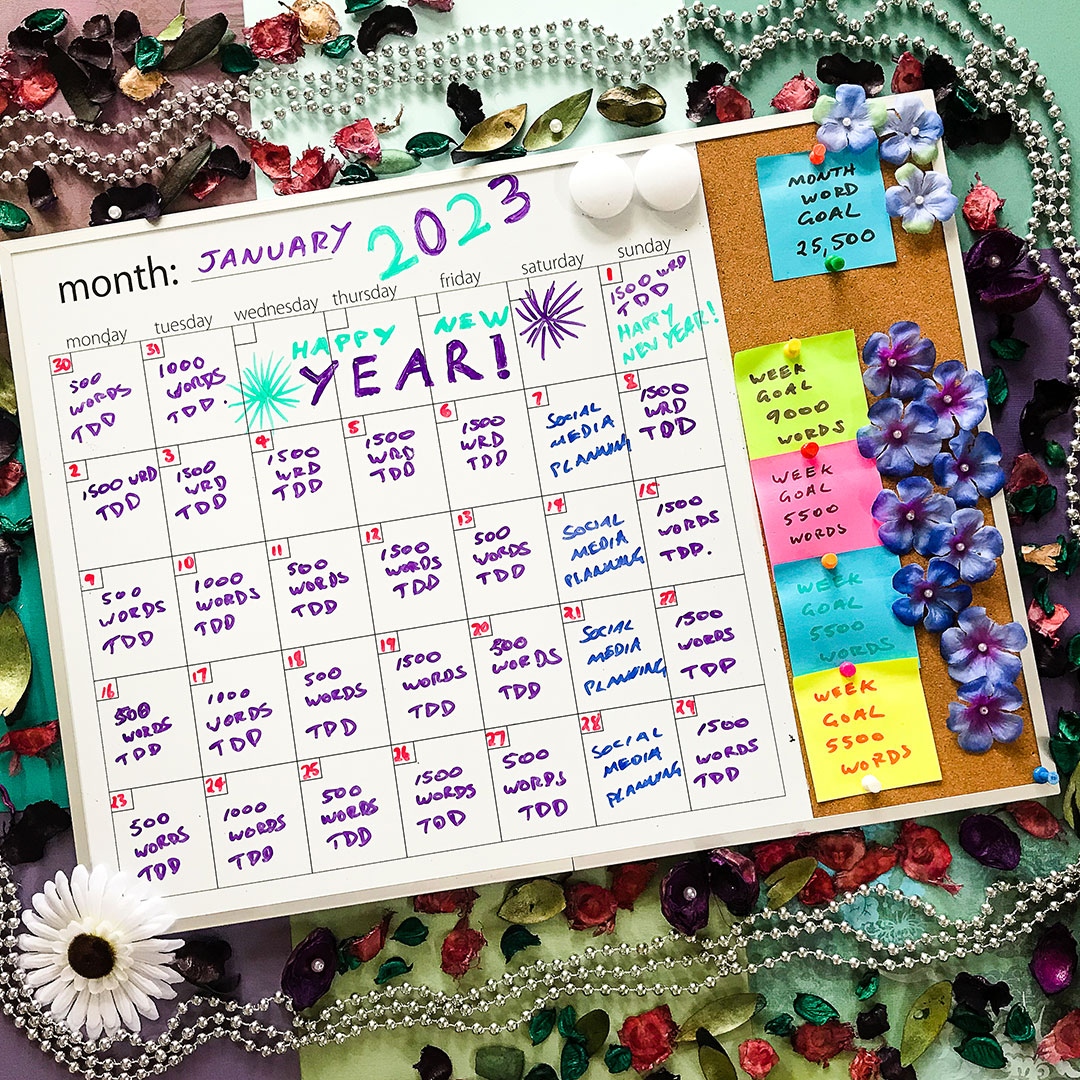 month: JANUARY 2023
monday tuesday wednesday thursday friday saturday sunday
30
500
WORDS
TDD
31
1000
WORDS
TDD.
HAPPY NEW
YEAR!
1
1500 WRD
TDD
HAPPY
NEW YEAR!
2
1500 WRD
TDD
3
1500
WRD
TDD
4
1500
WRD
TDD
5
1500
WRD
TDD
6
1500
WRD
TDD
7
SOCIAL
MEDIA
PLANNING
8
1500
WRD
TDD
9
500
WORDS
TDD
10
1000
WORDS
TDD
11
500
WORDS
TDD
12
1500
WORDS
TDD
13
500
WORDS
TDD
14
SOCIAL
MEDIA
PLANNING
15
1500
WORDS
TDD.
16
500
WORDS
TDD
17
1000
WORDS
TDD
18
500
WORDS
TDD
19
1500
WORDS
TDD
20
500
WORDS
TDD
21
SOCIAL
MEDIA
PLANNING
22
1500
WORDS
TDD
23
500
WORDS
TDD
24
1000
WORDS
TDD
25
500
WORDS
TDD
26
1500
WORDS
TDD
27
500
WORDS
TDD
28
SOCIAL
MEDIA
PLANNING
29
1500
WORDS
TDD
MONTH
WORD
GOAL
25,500
WEEK
GOAL
9000
WORDS
WEEK
GOAL
5500
WORDS
WEEK
GOAL
5500
WORDS
WEEK
GOAL
5500
WORDS